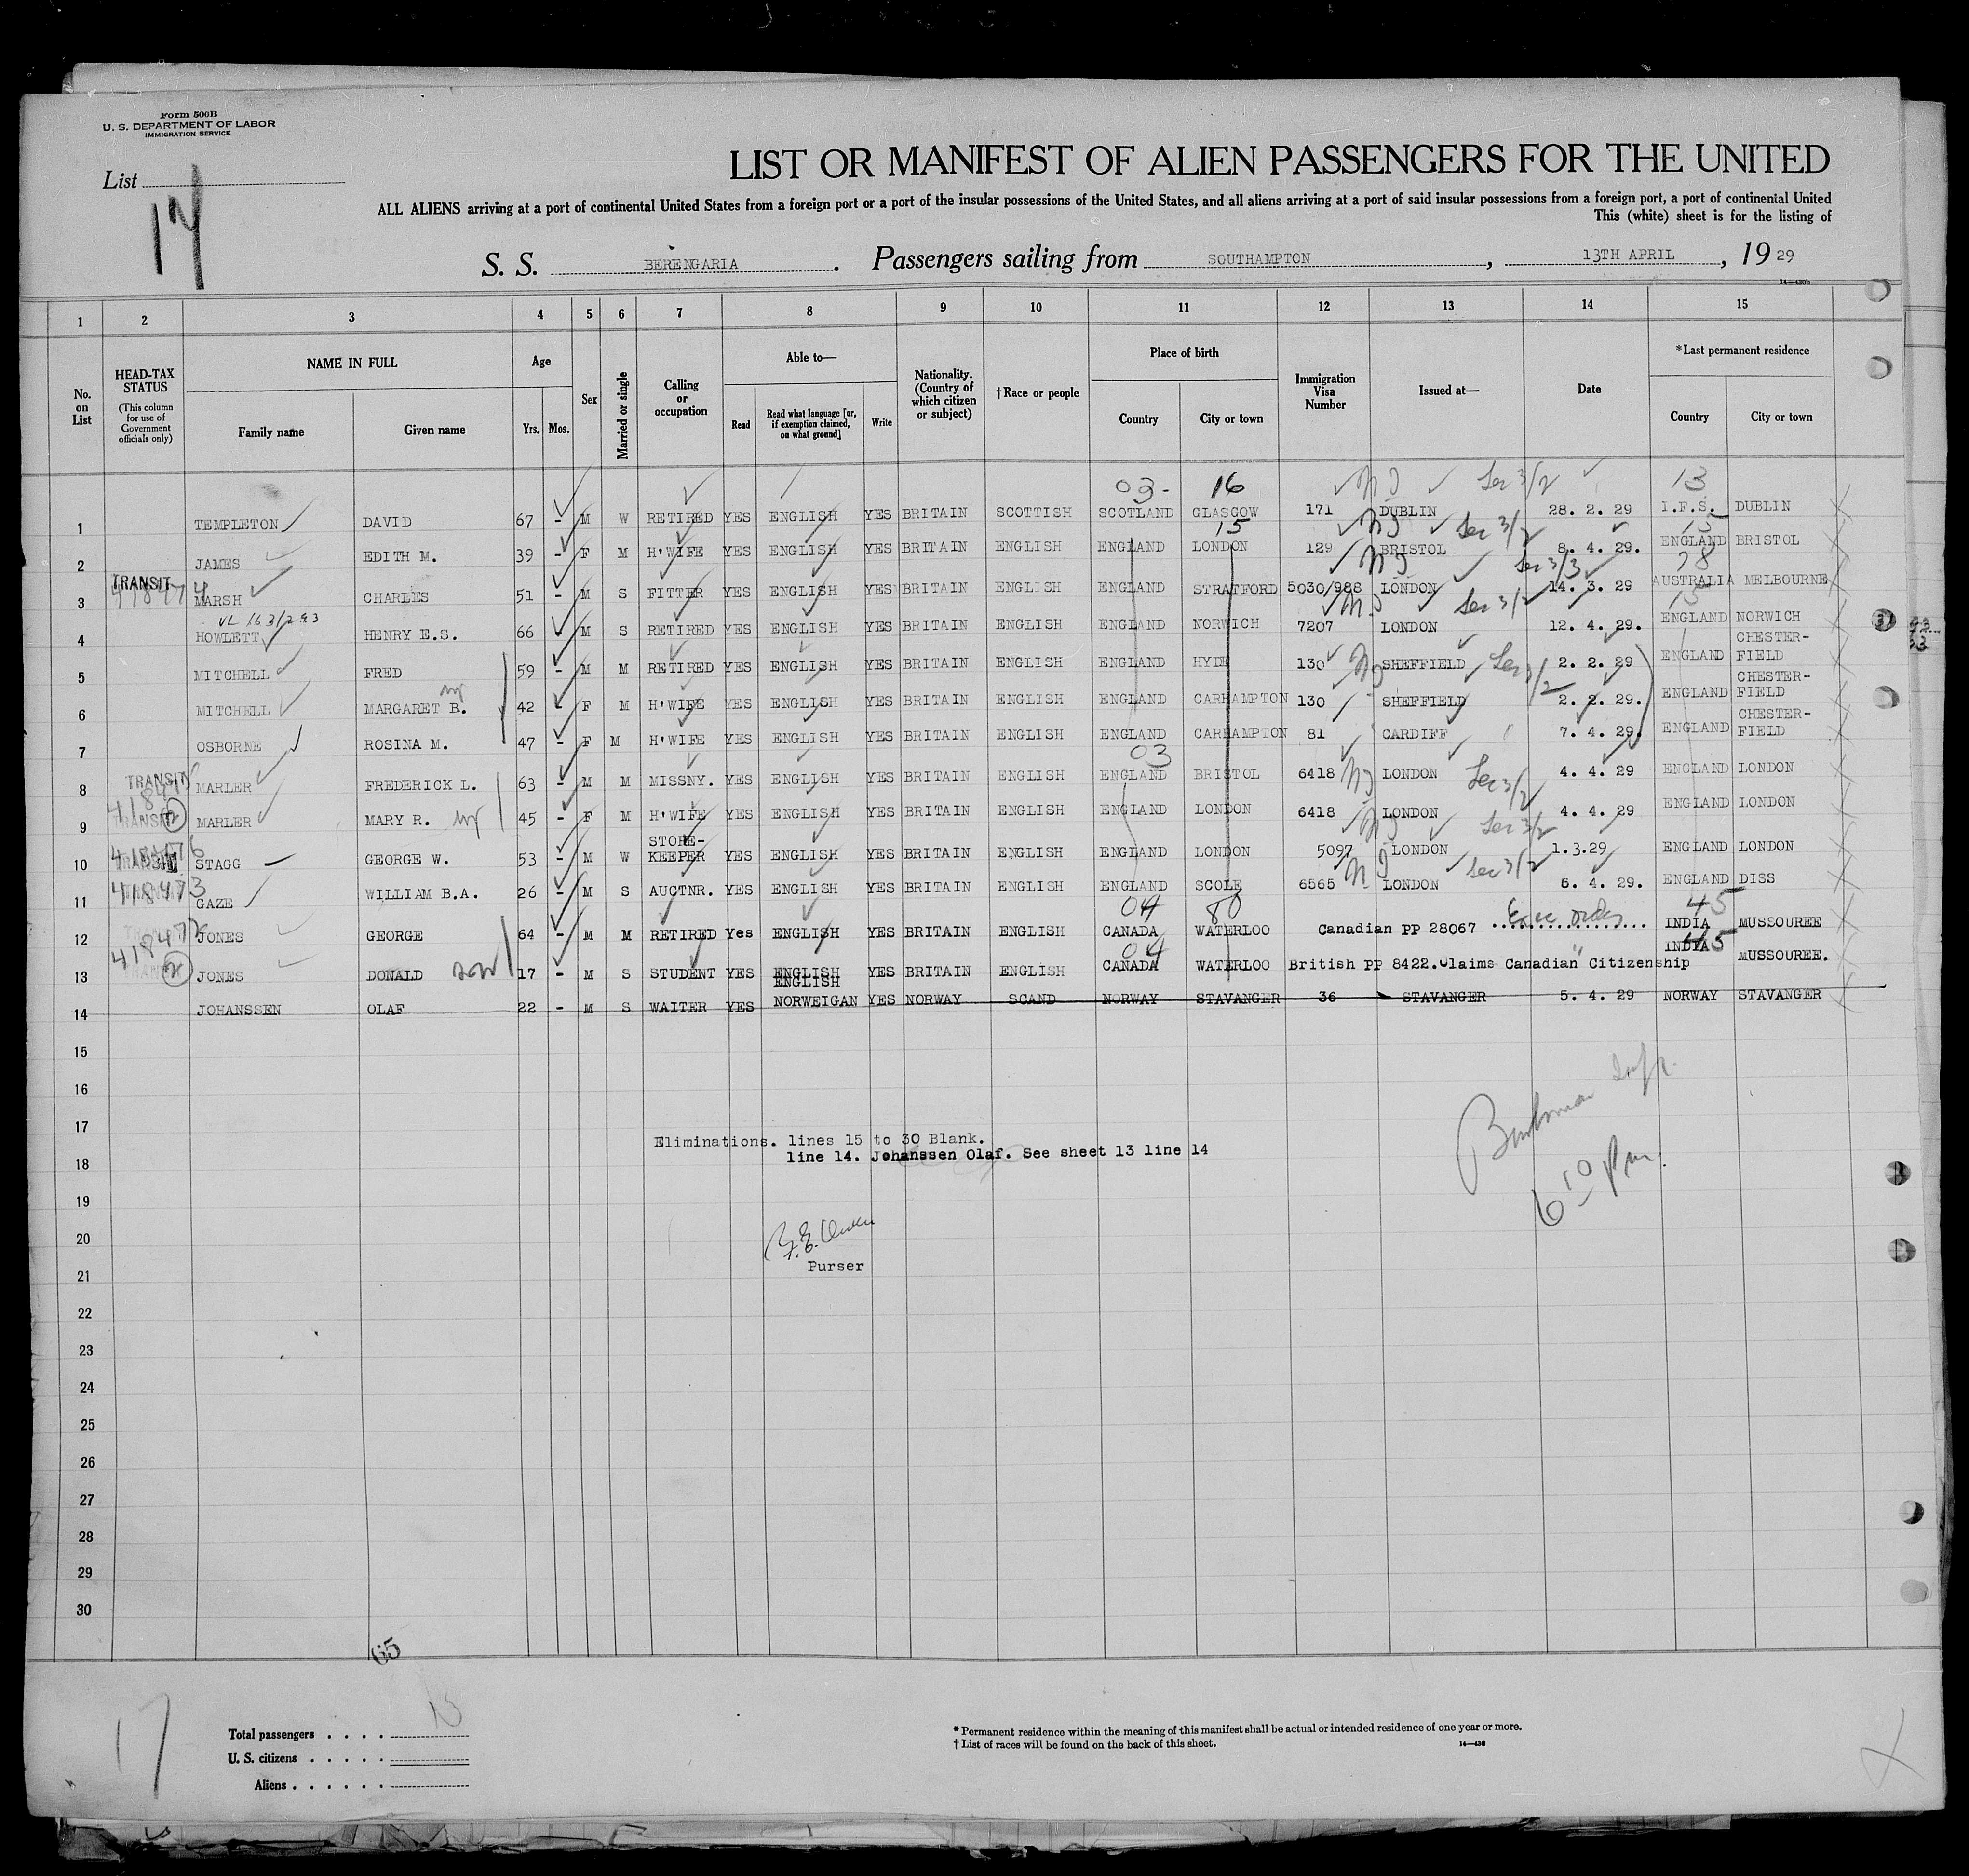 Form 500B
U. S. DEPARTMENT OF LABOR
IMMIGRATION SERVICE
List
14
LIST OR MANIFEST OF ALIEN PASSENGERS FOR THE UNITED
ALL ALIENS arriving at a port of continental United States from a foreign port or a port of the insular possessions of the United States, and all aliens arriving at a port of said insular possessions from a foreign port, a port of continental United
This (white) sheet is for the listing of
S. S. BERENGARIA. Passengers sailing from SOUTHAMPTON, 13TH APRIL, 1929
14—430b
1 2 3 4 5 6 7 8 9 10 11 12 13 14 15
No. on List
HEAD-TAX STATUS (This column for use of Government officials only)
NAME IN FULL
Family name
Given name
Age
Yrs.
Mos.
Sex
Married or single
Calling or occupation
Able to—
Read
Read what language [or, if exemption claimed, on what ground]
Write
Nationality. (Country of which citizen or subject)
†Race or people
Place of birth
Country
City or town
Immigration Visa Number
Issued at—
Date
*Last permanent residence
Country
City or town
03- 16 Sec 3/2 13
1 TEMPLETON DAVID 67 - M W RETIRED YES ENGLISH YES BRITAIN SCOTTISH SCOTLAND GLASGOW 171 DUBLIN 28. 2. 29 I.F.S. DUBLIN
15 Sec 3/2 15
2 JAMES EDITH M. 39 - F M H'WIFE YES ENGLISH YES BRITAIN ENGLISH ENGLAND LONDON 129 BRISTOL 8. 4. 29. ENGLAND BRISTOL
TRANSIT 418474 Sec 3/3 78
3 MARSH CHARLES 51 - M S FITTER YES ENGLISH YES BRITAIN ENGLISH ENGLAND STRATFORD 5030/988 LONDON 14. 3. 29 AUSTRALIA MELBOURNE
VL 163/293 Sec 3/2 15
4 HOWLETT HENRY E.S. 66 - M S RETIRED YES ENGLISH YES BRITAIN ENGLISH ENGLAND NORWICH 7207 LONDON 12. 4. 29. ENGLAND NORWICH
5 MITCHELL FRED 59 - M M RETIRED YES ENGLISH YES BRITAIN ENGLISH ENGLAND HYDE 130 SHEFFIELD Sec 3/2 2. 2. 29 ENGLAND CHESTER-FIELD
6 MITCHELL MARGARET B. 42 - F M H'WIFE YES ENGLISH YES BRITAIN ENGLISH ENGLAND CARHAMPTON 130 SHEFFIELD 2. 2. 29. ENGLAND CHESTER-FIELD
7 OSBORNE ROSINA M. 47 - F M H'WIFE YES ENGLISH YES BRITAIN ENGLISH ENGLAND CARHAMPTON 81 CARDIFF 7. 4. 29. ENGLAND CHESTER-FIELD
03
8 TRANSIT MARLER FREDERICK L. 63 - M M MISSNY. YES ENGLISH YES BRITAIN ENGLISH ENGLAND BRISTOL 6418 LONDON Sec 3/2 4. 4. 29 ENGLAND LONDON
41847
9 TRANSIT 2 MARLER MARY R. 45 - F M H'WIFE YES ENGLISH YES BRITAIN ENGLISH ENGLAND LONDON 6418 LONDON Sec 3/2 4. 4. 29 ENGLAND LONDON
418476
10 TRANSIT STAGG GEORGE W. 53 - M W STORE-KEEPER YES ENGLISH YES BRITAIN ENGLISH ENGLAND LONDON 5097 LONDON 1.3.29 ENGLAND LONDON
418473 Sec 3/2
11 GAZE WILLIAM B.A. 26 - M S AUCTNR. YES ENGLISH YES BRITAIN ENGLISH ENGLAND SCOLE 6565 LONDON 6. 4. 29. ENGLAND DISS
04 80 45
12 JONES GEORGE 64 - M M RETIRED Yes ENGLISH YES BRITAIN ENGLISH CANADA WATERLOO Canadian PP 28067 Exec order INDIA MUSSOUREE
418472 04 45
13 2 JONES DONALD son 17 - M S STUDENT YES ENGLISH YES BRITAIN ENGLISH CANADA WATERLOO British PP 8422. Claims Canadian Citizenship INDIA MUSSOUREE.
14 JOHANSSEN OLAF 22 - M S WAITER YES ENGLISH NORWEIGAN YES NORWAY SCAND NORWAY STAVANGER 36 STAVANGER 5. 4. 29 NORWAY STAVANGER
15
16
17
Eliminations. lines 15 to 30 Blank.
line 14. Johanssen Olaf. See sheet 13 line 14
18
6 10 Pm.
19
20
Purser
21
22
23
24
25
26
27
28
29
30
65
17
Total passengers . . . . 13
U. S. citizens . . . . .
Aliens . . . . . .
* Permanent residence within the meaning of this manifest shall be actual or intended residence of one year or more.
† List of races will be found on the back of this sheet.
14—430